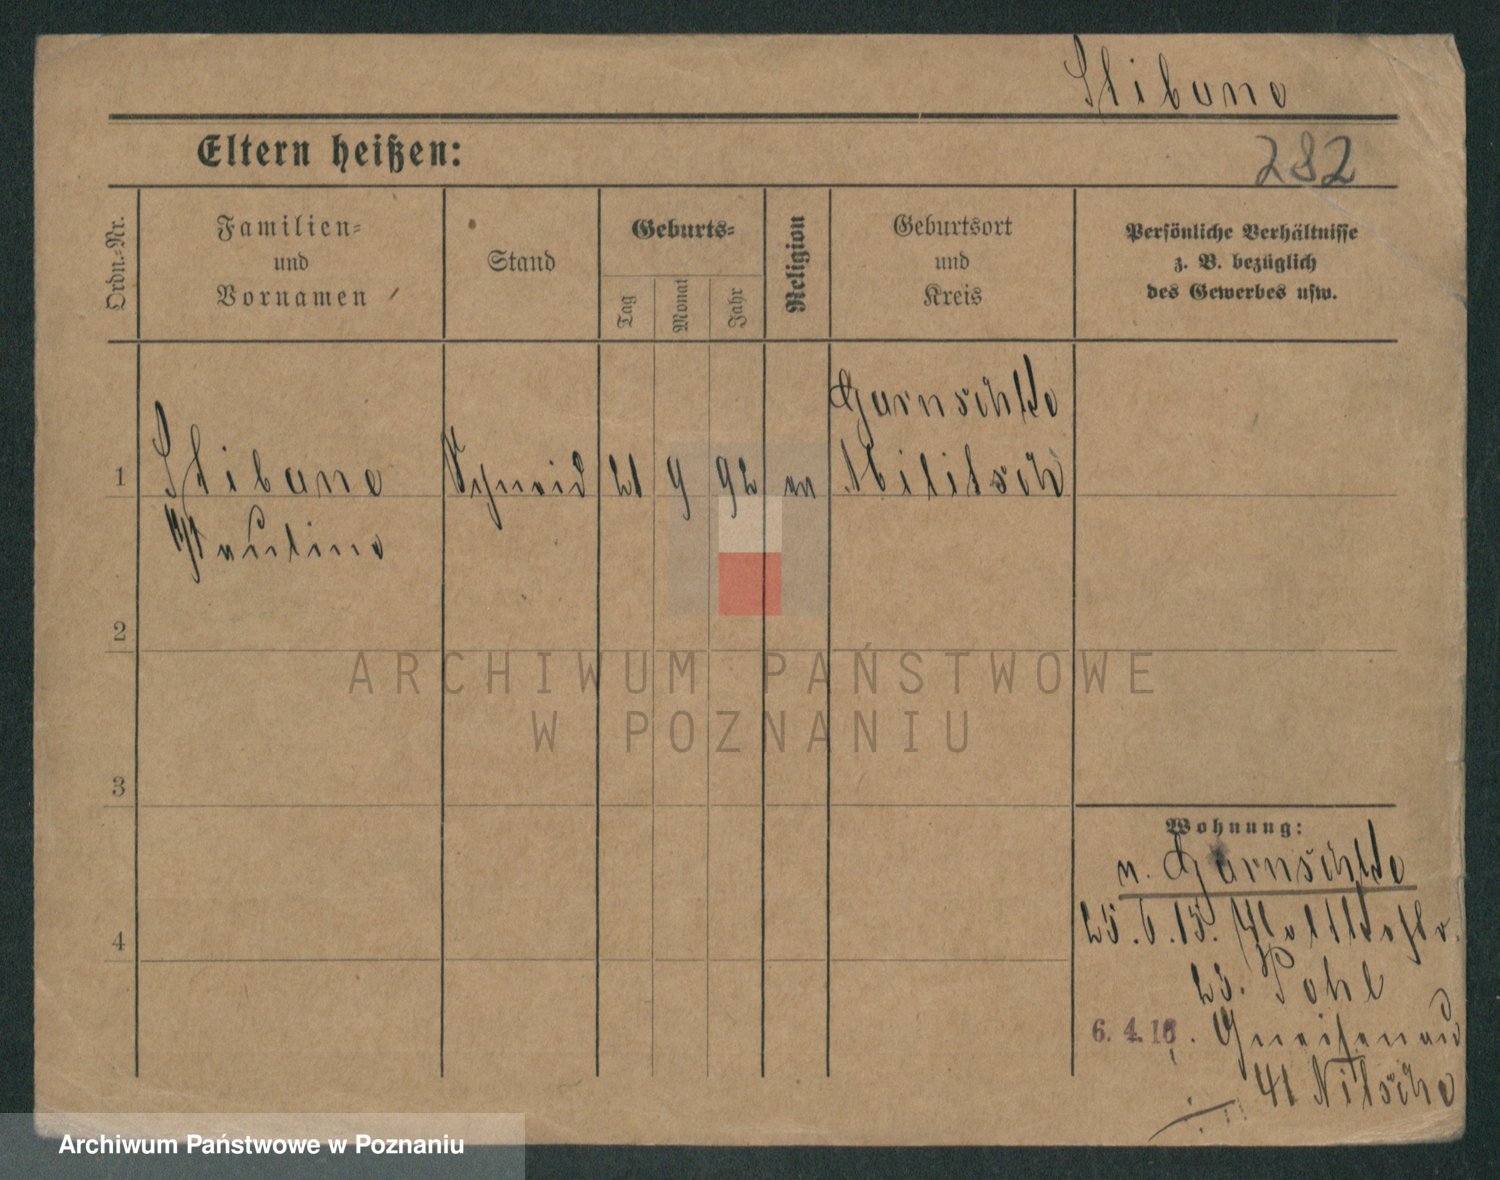 Stibane
Eltern heißen:
282
Ordn.-Nr.
Familien-
und
Vornamen
Stand
Geburts-
Tag
Monat
Jahr
Religion
Geburtsort
und
Kreis
Persönliche Verhältnisse
z. B. bezüglich
des Gewerbes usw.
1
Stibane
Pauline
Schneid
21
9
92
ev
Militsch
2
3
4
Wohnung:
v.
25. 6. 15.
23. Pohl
6. 4. 18. Gneisenau
41 Nitsche
ARCHIWUM PAŃSTWOWE
W POZNANIU
Archiwum Państwowe w Poznaniu